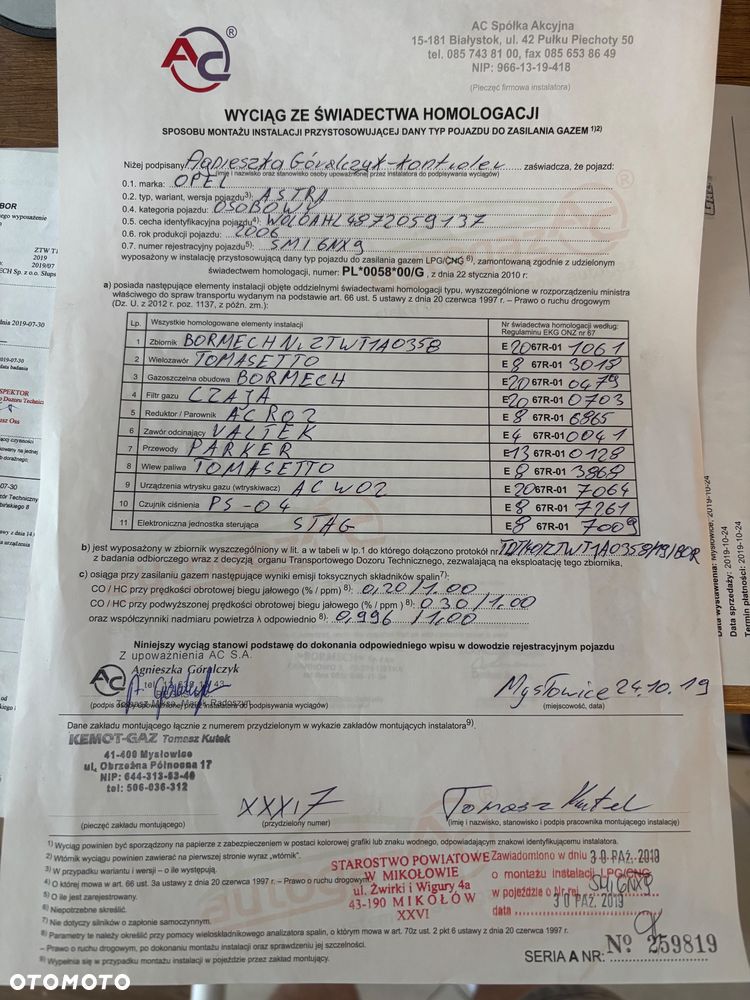 AC ®
AC Spółka Akcyjna
15-181 Białystok, ul. 42 Pułku Piechoty 50
tel. 085 743 81 00, fax 085 653 86 49
NIP: 966-13-19-418
(Pieczęć firmowa instalatora)
WYCIĄG ZE ŚWIADECTWA HOMOLOGACJI
SPOSOBU MONTAŻU INSTALACJI PRZYSTOSOWUJĄCEJ DANY TYP POJAZDU DO ZASILANIA GAZEM 1)2)
Niżej podpisany Agnieszka Góralczyk-kontroler zaświadcza, że pojazd:
(imię i nazwisko oraz stanowisko osoby upoważnionej przez instalatora do podpisywania wyciągów)
0.1. marka: OPEL
0.2. typ, wariant, wersja pojazdu3): ASTRA
0.4. kategoria pojazdu: OSOBOWY
0.5. cecha identyfikacyjna pojazdu4): W0L0AHL4872059137
0.6. rok produkcji pojazdu: 2006
0.7. numer rejestracyjny pojazdu5): SMI6NX9
wyposażony w instalację przystosowującą dany typ pojazdu do zasilania gazem LPG/CNG 6), zamontowaną zgodnie z udzielonym
świadectwem homologacji, numer: PL*0058*00/G , z dnia 22 stycznia 2010 r.:
a) posiada następujące elementy instalacji objęte oddzielnymi świadectwami homologacji typu, wyszczególnione w rozporządzeniu ministra
właściwego do spraw transportu wydanym na podstawie art. 66 ust. 5 ustawy z dnia 20 czerwca 1997 r. – Prawo o ruchu drogowym
(Dz. U. z 2012 r. poz. 1137, z późn. zm.):
Lp. Wszystkie homologowane elementy instalacji Nr świadectwa homologacji według:
Regulaminu EKG ONZ nr 67
1 Zbiornik BORMECH Nr ZTWT1A0358 E 20 67R-01 1061
2 Wielozawór TOMASETTO E 8 67R-01 3018
3 Gazoszczelna obudowa BORMECH E 20 67R-01 0479
4 Filtr gazu CZAJA E 20 67R-01 0703
5 Reduktor / Parownik AC R02 E 8 67R-01 6865
6 Zawór odcinający VALTEK E 4 67R-01 0041
7 Przewody PARKER E 13 67R-01 0128
8 Wlew paliwa TOMASETTO E 8 67R-01 3868
9 Urządzenia wtrysku gazu (wtryskiwacz) AC W02 E 20 67R-01 7064
10 Czujnik ciśnienia PS-04 E 8 67R-01 7261
11 Elektroniczna jednostka sterująca STAG E 8 67R-01 7009
b) jest wyposażony w zbiornik wyszczególniony w lit. a w tabeli w lp.1 do którego dołączono protokół nr
z badania odbiorczego wraz z decyzją organu Transportowego Dozoru Technicznego, zezwalającą na eksploatację tego zbiornika,
c) osiąga przy zasilaniu gazem następujące wyniki emisji toksycznych składników spalin7):
CO / HC przy prędkości obrotowej biegu jałowego (% / ppm) 8): 0,20/1.00
CO / HC przy podwyższonej prędkości obrotowej biegu jałowego (% / ppm ) 8): 0.30/1.00
oraz współczynniki nadmiaru powietrza λ odpowiednio 8): 0,996 /1,00
Niniejszy wyciąg stanowi podstawę do dokonania odpowiedniego wpisu w dowodzie rejestracyjnym pojazdu
Z upoważnienia AC S.A.
Agnieszka Góralczyk
(podpis osoby upoważnionej przez instalatora do podpisywania wyciągów)
Mysłowice 24.10.19
(miejscowość, data)
Dane zakładu montującego łącznie z numerem przydzielonym w wykazie zakładów montujących instalatora9).
KEMOT-GAZ Tomasz Kutek
41-400 Mysłowice
ul. Obrzeżna Północna 17
NIP: 644-313-53-40
tel: 506-036-312
XXXI7
Tomasz Kutek
(pieczęć zakładu montującego)
(przydzielony numer)
(imię i nazwisko, stanowisko i podpis pracownika montującego instalację)
1) Wyciąg powinien być sporządzony na papierze z zabezpieczeniem w postaci kolorowej grafiki lub znaku wodnego, odpowiadającym znakowi identyfikującemu instalatora.
2) Wtórnik wyciągu powinien zawierać na pierwszej stronie wyraz „wtórnik".
3) W przypadku wariantu i wersji – o ile występują.
4) O której mowa w art. 66 ust. 3a ustawy z dnia 20 czerwca 1997 r. – Prawo o ruchu drogowym
5) O ile jest zarejestrowany.
6) Niepotrzebne skreślić.
7) Nie dotyczy silników o zapłonie samoczynnym.
8) Parametry te należy określić przy pomocy wieloskładnikowego analizatora spalin, o którym mowa w art. 70z ust. 2 pkt 6 ustawy z dnia 20 czerwca 1997 r.
– Prawo o ruchu drogowym, po dokonaniu montażu instalacji oraz sprawdzeniu jej szczelności.
9) Wypełnia się w przypadku montażu instalacji w pojeździe przez zakład montujący.
STAROSTWO POWIATOWE
W MIKOŁOWIE
ul. Żwirki i Wigury 4a
43-190 MIKOŁÓW
XXVI
Zawiadomiono w dniu 30 PAŹ. 2019
o montażu instalacji LPG/CNG
w pojeździe o Nr rej. SMI6NX9
data 30 PAŹ. 2019
SERIA A NR: Nº 259819
Data wystawienia: Mysłowice, 2019-10-24
Data sprzedaży: 2019-10-24
Termin płatności: 2019-10-24
OTOMOTO